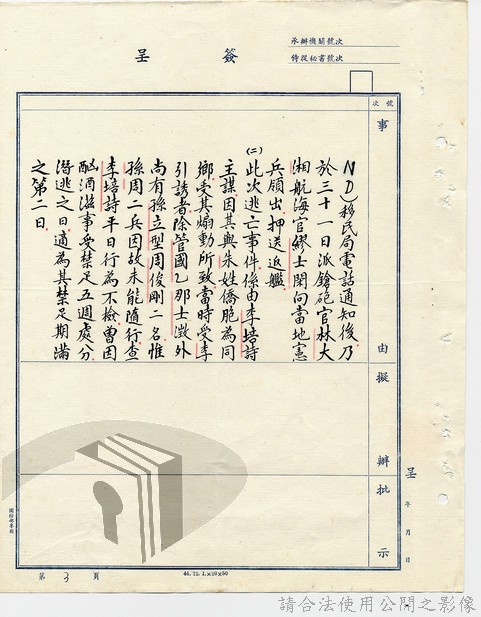 承辦機關號次
侍從秘書號次
簽呈
號次
事由
擬辦
批示
ND)移民局電話通知後乃
於三十一日派鎗砲官林大
湘航海官繆士閑向當地憲
兵領出押送返艦.
(二)此次逃亡事件係由李培詩
主謀因其與朱姓僑胞為同
鄉.受其煽動所致當時受李
引誘者.除管國乙那士澂外
尚有孫立型周俊剛二名.惟
孫周二兵因故未能隨行查
李培詩平日行為不檢.曾因
酗酒滋事受禁足五週處分
潛逃之日.適為其禁足期滿
之第二日.
呈
年月日
第3頁
請合法使用公開之影像